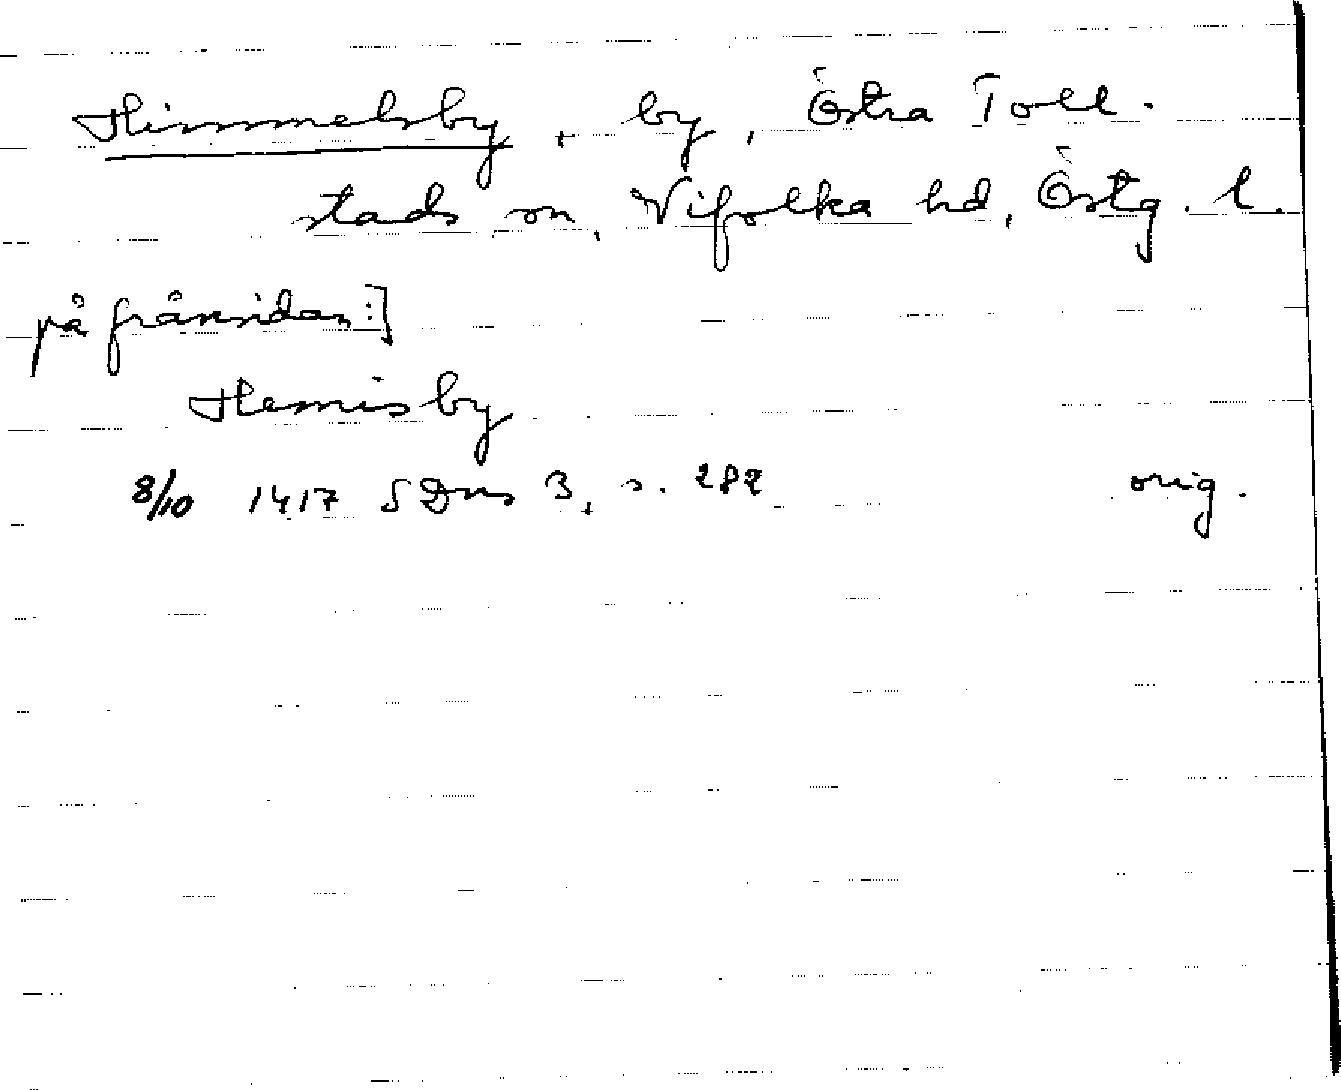 Himmelsby, by, Östra Toll-
stads sn, Vifolka hd, Östg. l.
på frånsidan:]
Hemisby
8/10 1417 SDns 3, s. 282 orig.